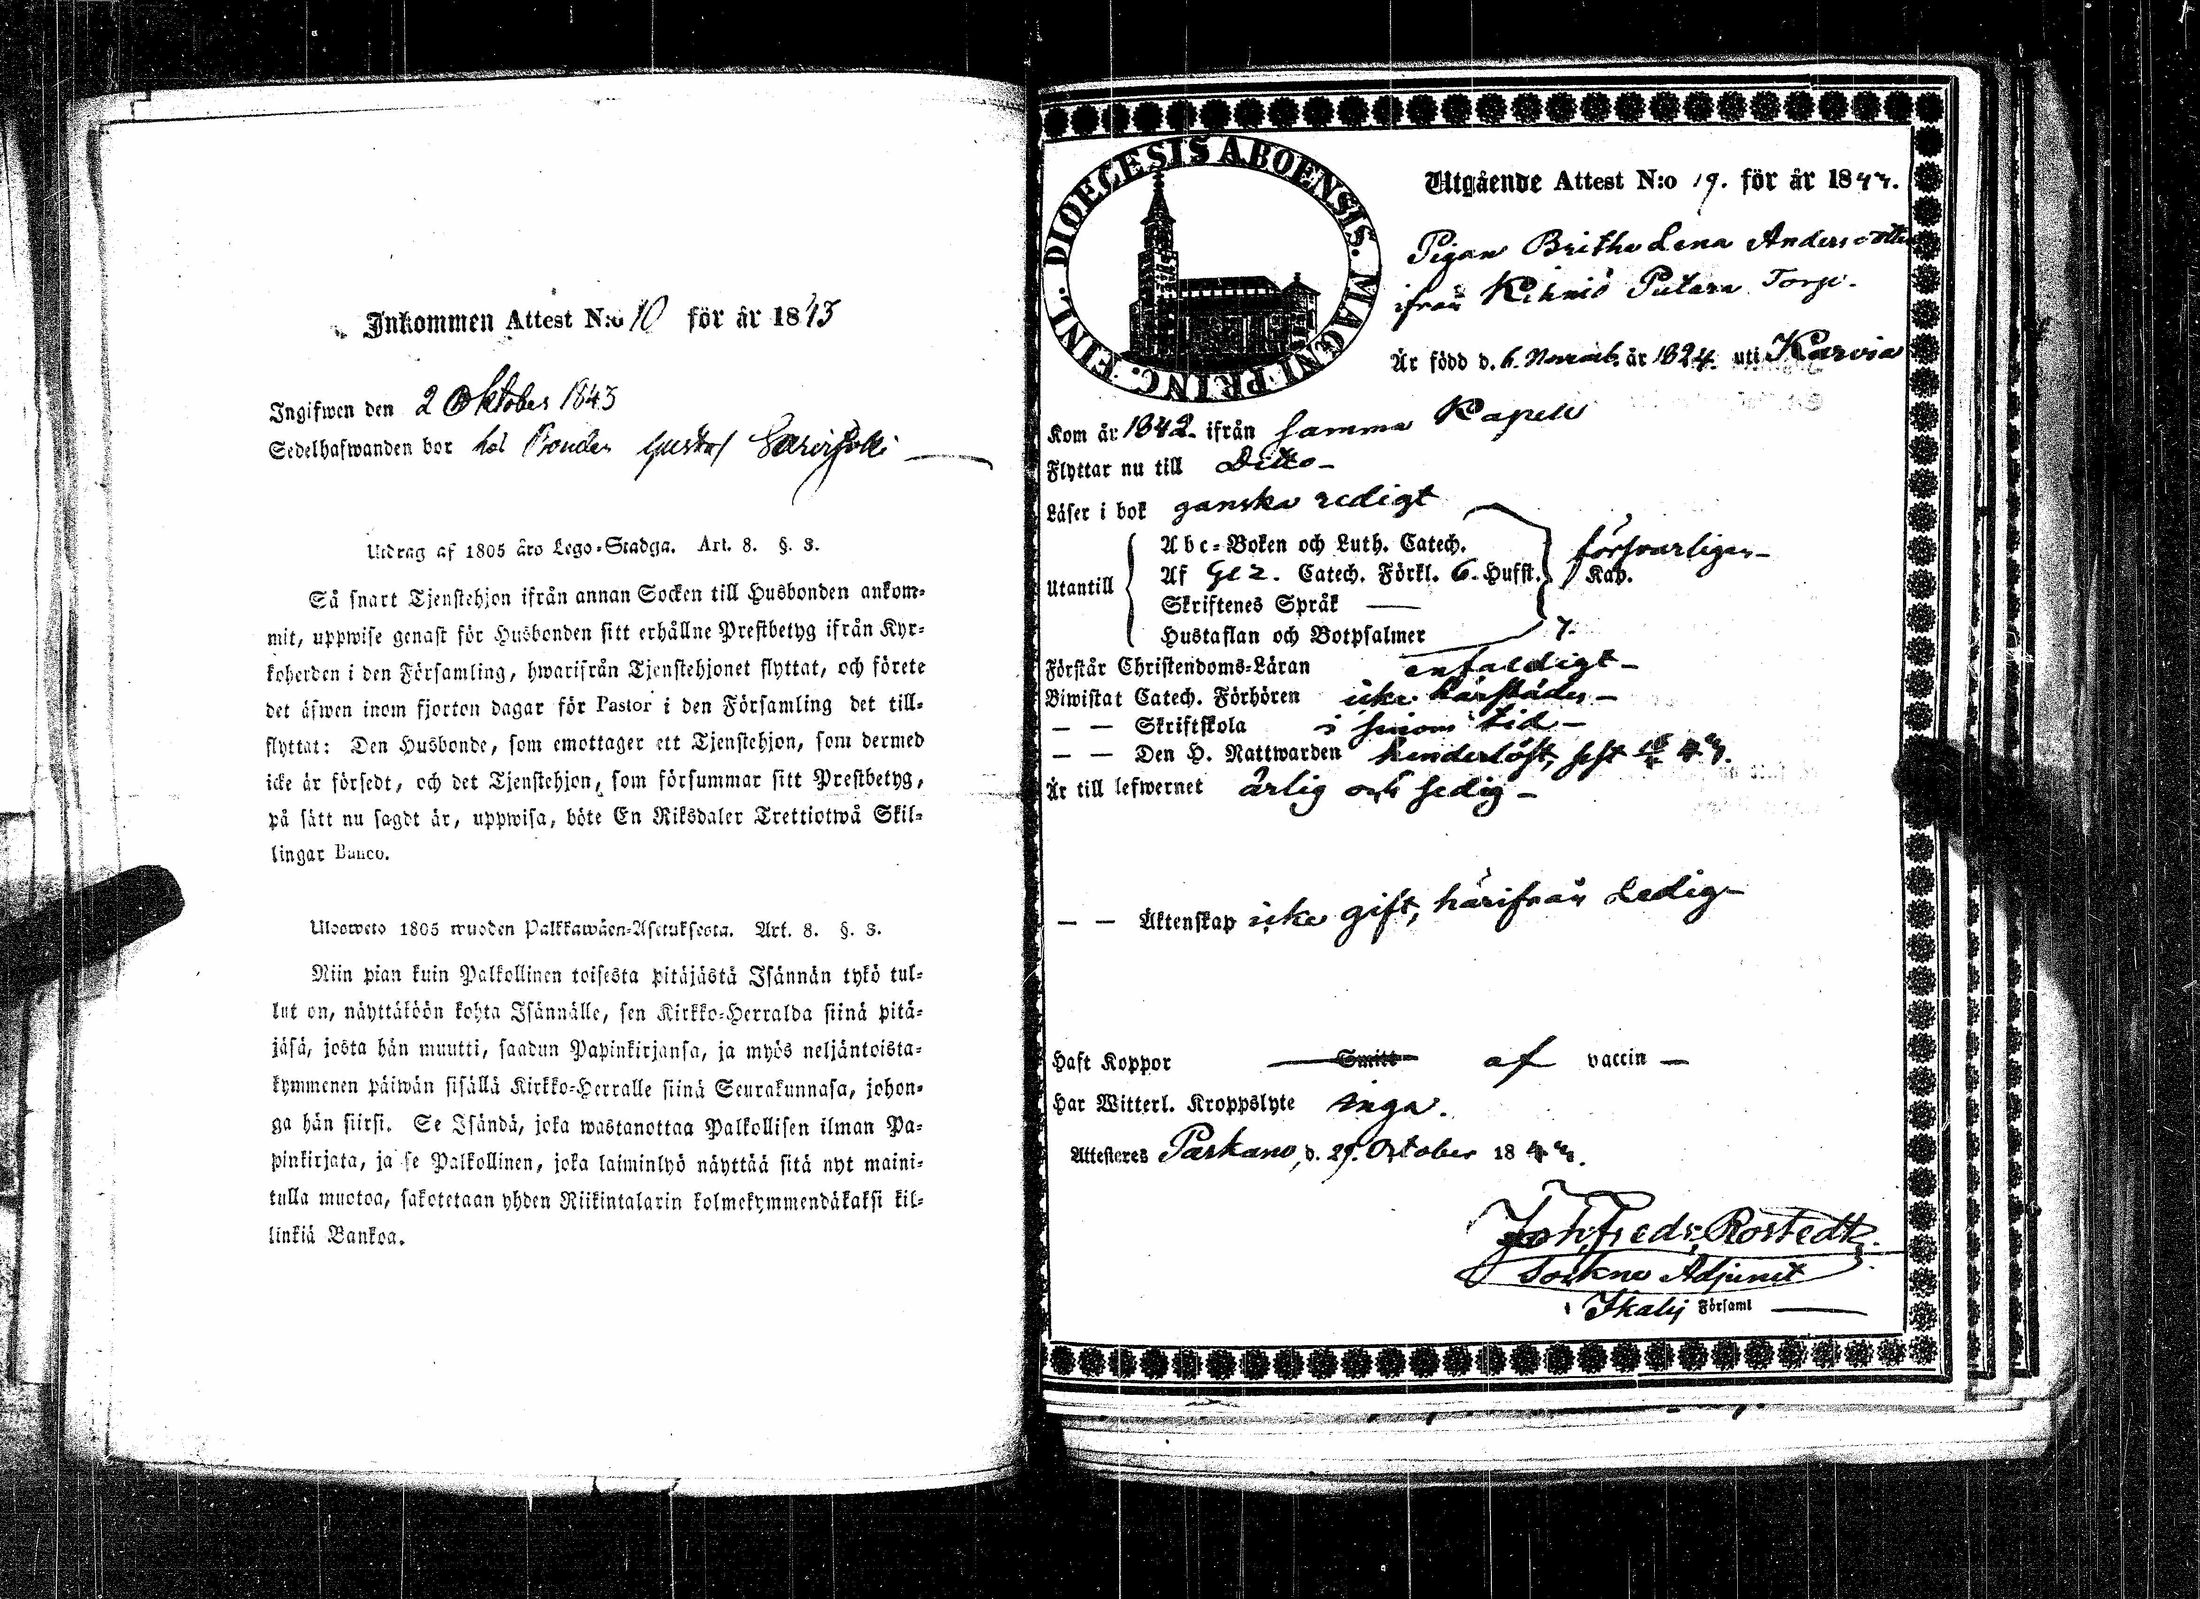 Inkommen Attest N:o 10 för år 1843
Ingifwen den 2 Oktober 1843
Sedelhafwanden bor hos Bonden Gustaf
Utdrag af 1805 års Lego-Stadga. Art. 8. §. 3.
Så snart Tjenstehjon ifrån annan Socken till Husbonden ankom-
mit, uppwise genast för Husbonden sitt erhållne Prestbetyg ifrån Kyr-
koherden i den Församling, hwarifrån Tjenstehjonet flyttat, och förete
det äfwen inom fjorton dagar för Pastor i den Församling det till-
flyttat: Den Husbonde, som emottager ett Tjenstehjon, som dermed
icke är försedt, och det Tjenstehjon, som försummar sitt Prestbetyg,
på sätt nu sagdt är, uppwisa, böte En Riksdaler Trettiotwå Skil-
lingar Banco.
Ulosweto 1805 wuoden Palkkawäen-Asetuksesta. Art. 8. §. 3.
Niin pian kuin Palkollinen toisesta pitäjästä Isännän tykö tul-
lut on, näyttäköön kohta Isännälle, sen Kirkko-Herralda siinä pitä-
jäsä, josta hän muutti, saadun Papinkirjansa, ja myös neljäntoista-
kymmenen päiwän sisällä Kirkko-Herralle siinä Seurakunnasa, johon-
ga hän siirsi. Se Isändä, joka wastanottaa Palkollisen ilman Pa-
pinkirjata, ja se Palkollinen, joka laiminlyö näyttää sitä nyt maini-
tulla muotoa, sakotetaan yhden Riikintalarin kolmekymmendäkaksi kil-
linkiä Bankoa.
DIOECESIS ABOENSIS. MAGNI PRINC. FINL.
Utgående Attest N:o 19. för år 1844.
Pigan Britha Lena Andersdotter
ifrån Kihniö Torp.
Är född d. 6. Novemb. år 1824. uti Karvia
Kom år 1842. ifrån samma Kapell
Flyttar nu till Ditto
Läser i bok ganska redigt
Utantill
Abc-Boken och Luth. Catech.
Af Catech. Förkl. 6. Hufst. Kap. försvarligen
Skriftenes Språk
Hustaflan och Botpsalmer 7.
Förstår Christendoms-Läran enfaldigt
Biwistat Catech. Förhören icke härstädes
— — Skriftskola i sinom tid
— — Den H. Nattwarden hinderlöst, sist
Är till lefwernet ärlig och sedig
— — Äktenskap icke gift, härifrån ledig
Haft Koppor Smitt af vaccin
Har Witterl. Kroppslyte inga.
Attesteres Parkano, d. 29. October 1844.
Joh. Fredr. Rostedt
Sockne Adjunct
i Ikalis Församl